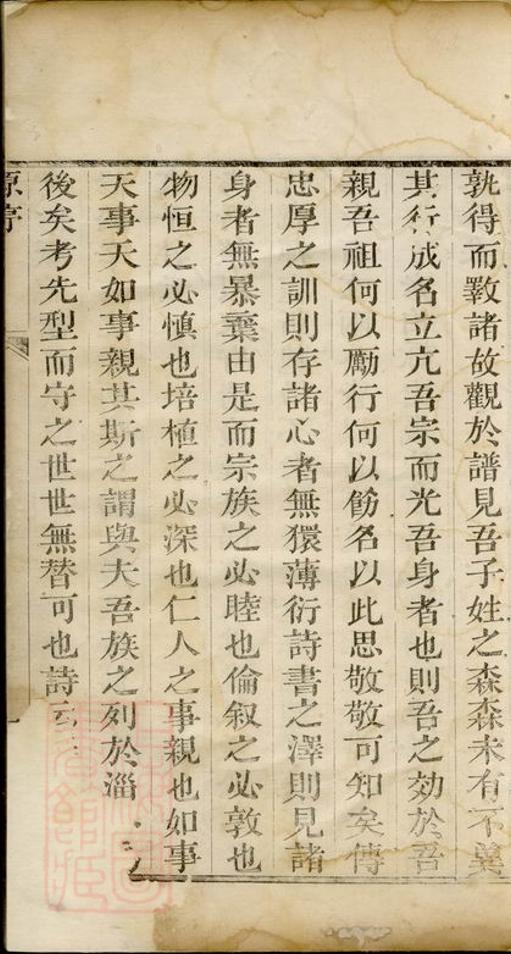 孰得而斁諸故觀於譜見吾子姓之森森未有不冀
其行成名立亢吾宗而光吾身者也則吾之効於吾
親吾祖何以勵行何以飭名以此思敬敬可知矣傳
忠厚之訓則存諸心者無獧薄衍詩書之澤則見諸
身者無暴棄由是而宗族之必睦也倫叙之必敦也
物恒之必慎也培植之必深也仁人之事親也如事
天事天如事親其斯之謂與夫吾族之列於淄
後矣考先型而守之世世無替可也詩云
原序